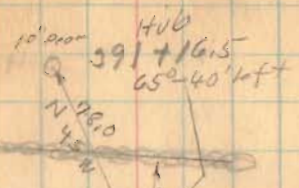 HUB
10" Pear
391+16.5
65°-40' Left
78.0
N 45 W